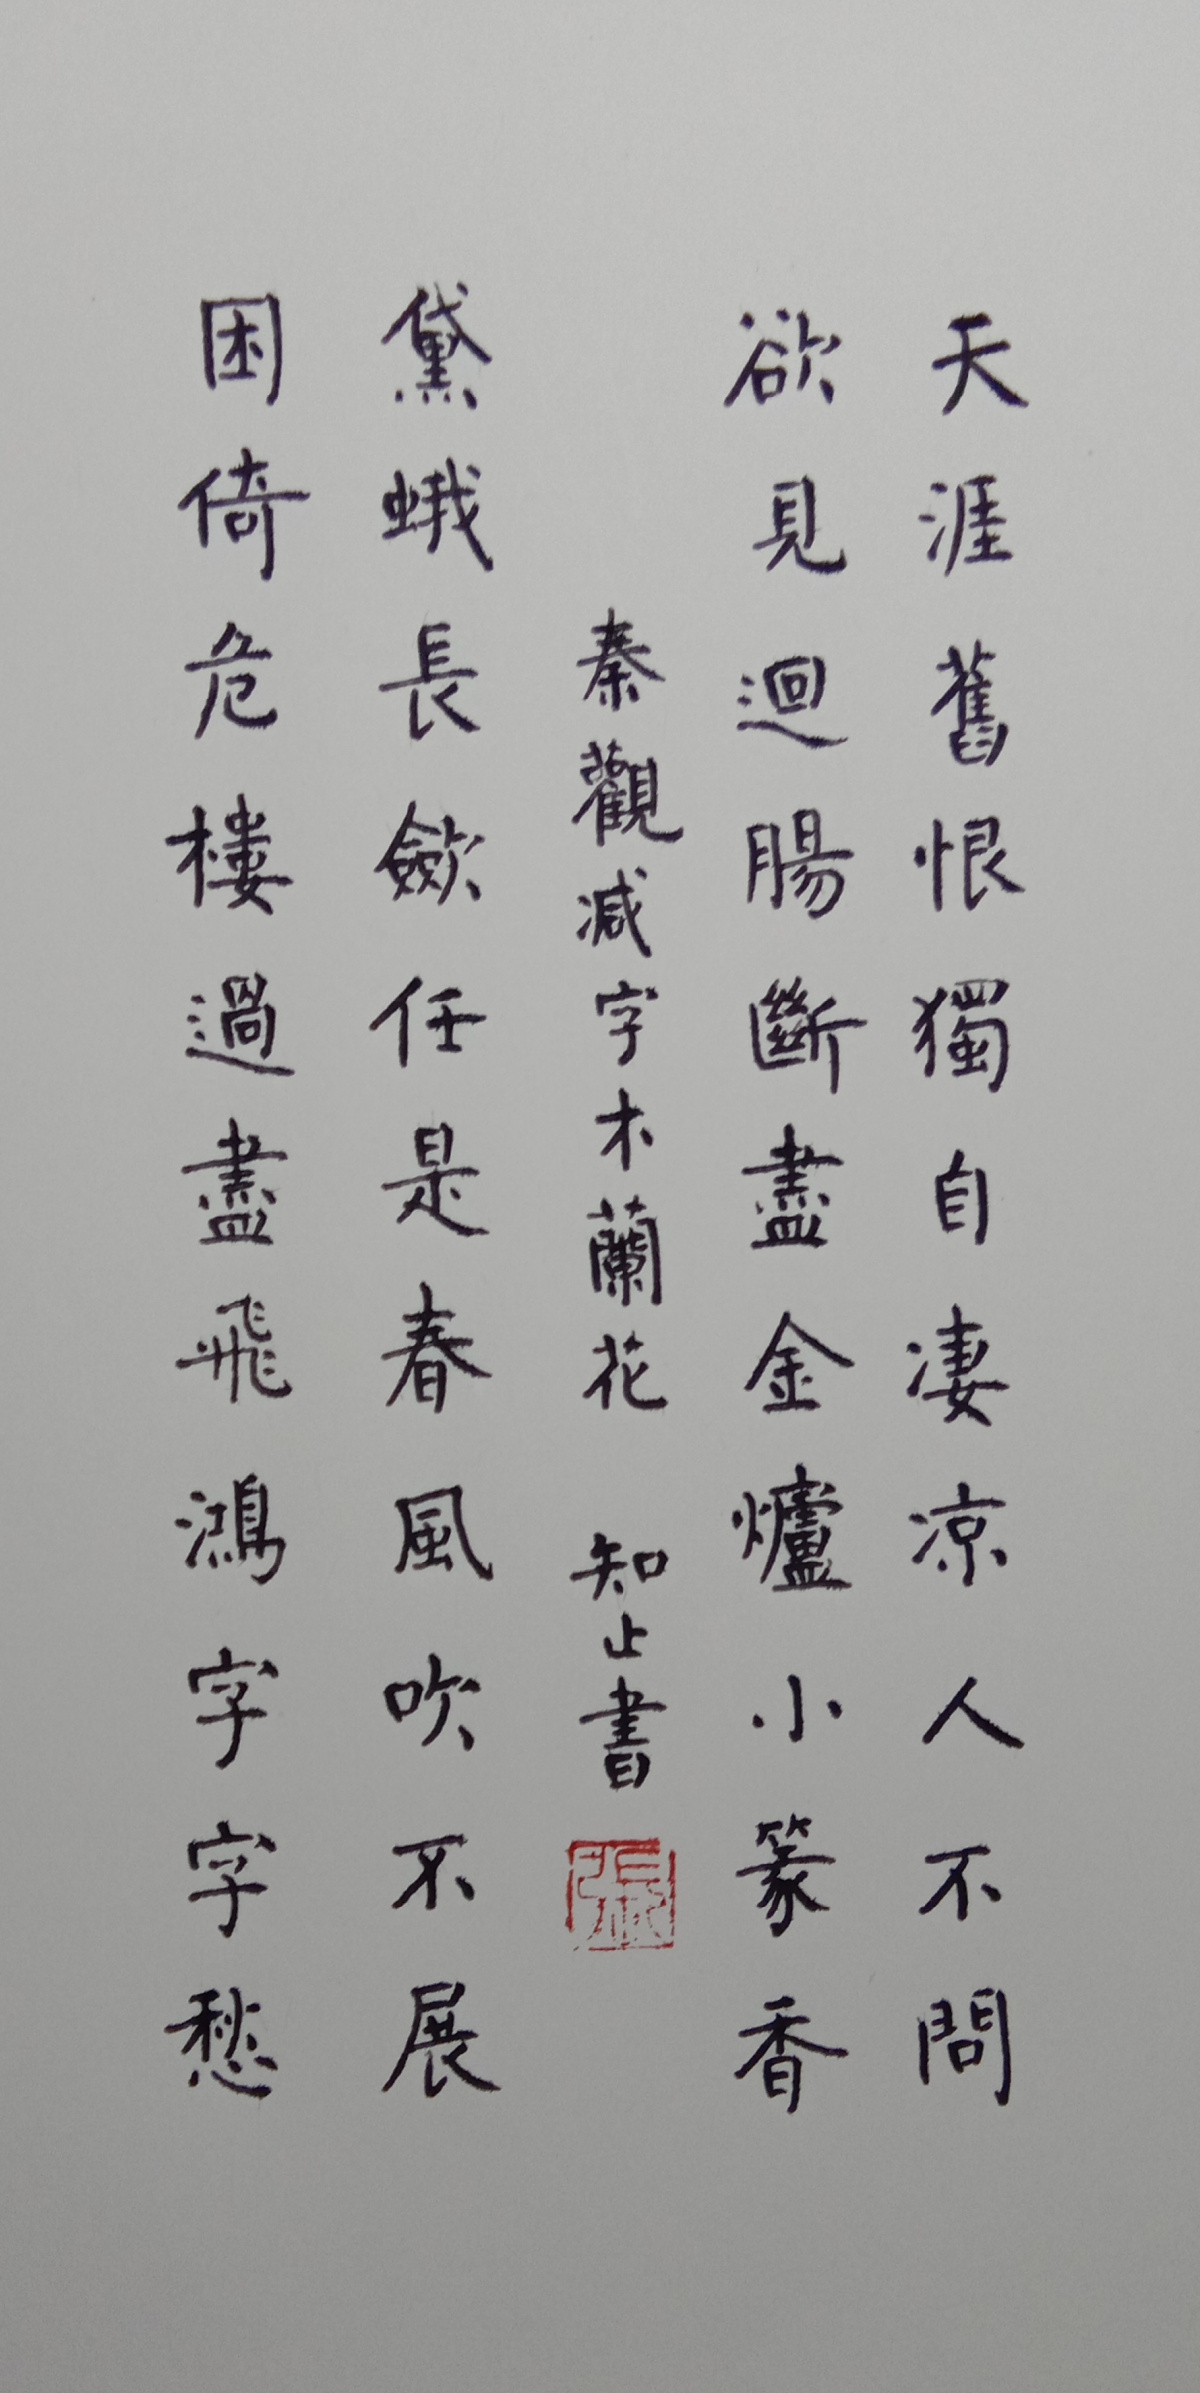 天涯舊恨獨自凄凉人不問
欲見迴腸斷盡金爐小篆香
秦觀減字木蘭花 知止書
張
黛蛾長斂任是春風吹不展
困倚危樓過盡飛鴻字字愁